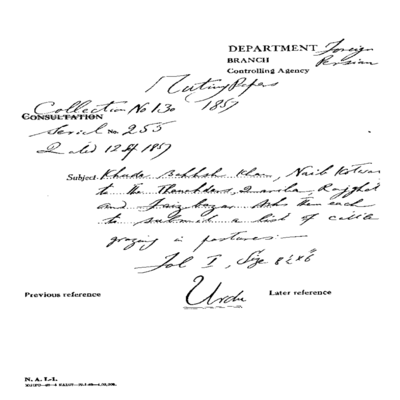 DEPARTMENT Foreign
BRANCH Persian
Controlling Agency
Mutiny Papers
Collection No 130 1857
CONSULTATION
Serial No. 255
Dated 12 Sept 1857
Subject Khuda Bakhsh Khan, Naib Kotwal
to the Thanadars, Rajghat
and Faiz bazar. Asks them each
to submit a list of cattle
grazing in pastures:—
Fol I, Size 8½x6
Previous reference
Urdu
Later reference
N. A. I.-1.